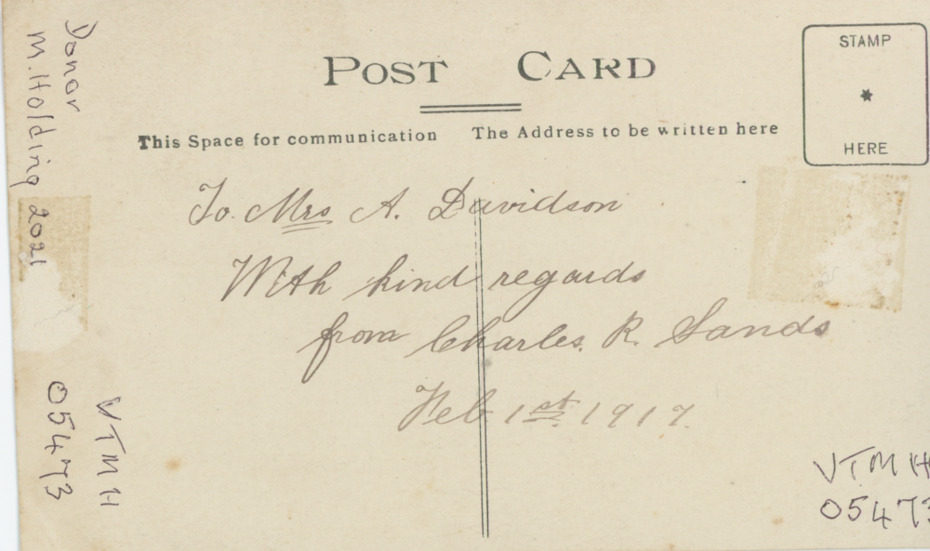 Donor
M. Holding 2021
POST CARD
This Space for communication The Address to be written here
STAMP
HERE
To Mrs A. Davidson
With kind regards
from Charles. R. Sands
Feb 1st. 1917.
VTMH
05473
VTMH
05473